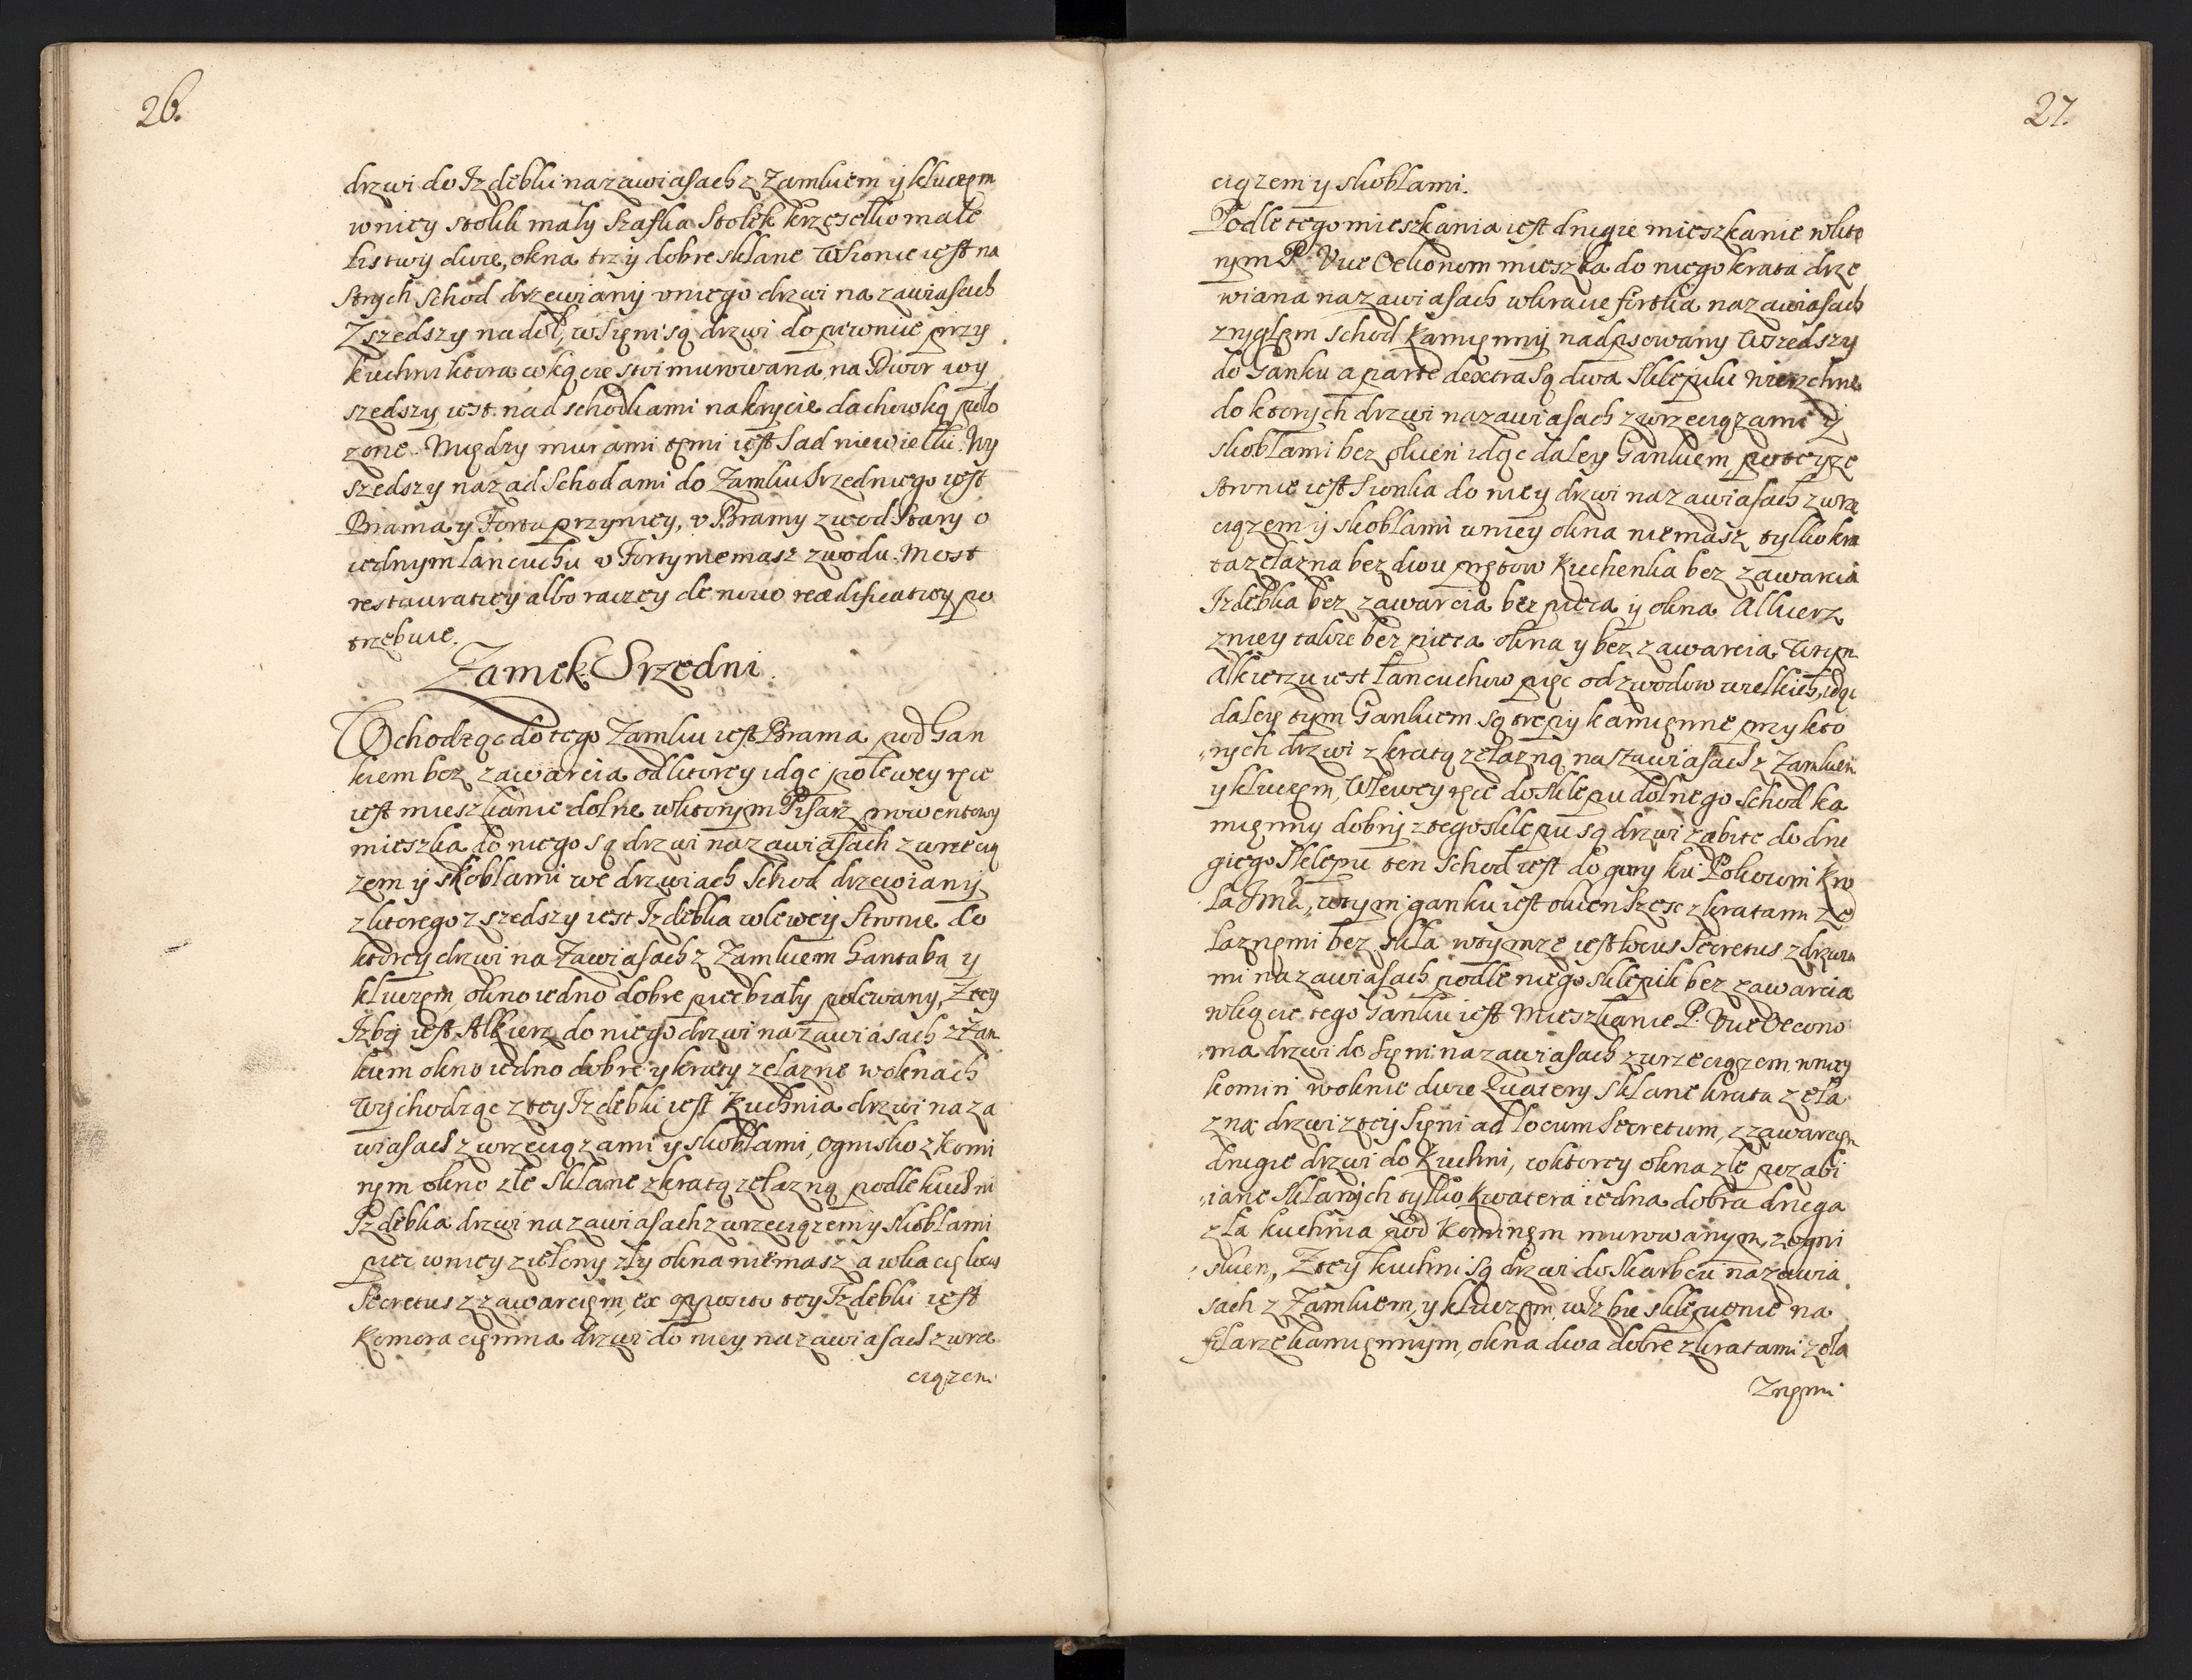 26.
drzwi do Izdebki na zawiasach z Zamkiem y kluczem
wniey stolik maly Szafka Stołek krzesełko małe
Listwy dwie, okna trzy dobre sklane Wsionce iest na
Strych Schod drzewiany vniego drzwi na zawiasach
Zszedszy na doł, wSieni są drzwi do piwnice przy
kuchni ktora wkącie stoi murowana, na Dwor wy
szedszy iest nad schodkami nakrycie dachowką poło
zone. Między murami temi iest Sad niewielki. Wy
szedszy nazad Schodami do Zamku Srzedniego iest
Brama y Forta przyniey, v Bramy zwod Stary o
iednym Lancuchu v Forty niemasz zwodu. Most
restauratiey albo raczey de novo reædificatiey po
trzebuie.
Zamek Srzedni.
Wchodząc do tego Zamku iest Brama pod Gan
kiem bez zawarcia od ktorey idąc polewey ręce
iest mieszkanie dolne wktorym Pisarz prowentowy
mieszka do niego są drzwi na zawiasach zwrzecią
zem y skoblami we drzwiach Schod drzewiany
zktorego zszedszy iest Izdebka wlewey Stronie do
ktorey drzwi na Zawiasach z Zamkiem Gantaba y
kluczem okno iedno dobre piec biały polewany, Ztey
Izby iest Alkierz do niego drzwi na zawiasach zZam
kiem okno iedno dobre y kraty zelazne woknach
Wychodząc ztey Izdebki iest Kuchnia drzwi na za
wiasach zwrzeciązami y skoblami, ognisko zKomi
nem okno złe Sklane zkratą zelazną podle kuchni
Izdebka drzwi na zawiasach zwrzeciązem y skoblami
piec wniey zielony zły okna niemasz a wkacie locus
Secretus zzawarciem, ex opposito tey Izdebki iest
Komora ciemna drzwi do niey na zawiasach zwrze
ciązem
27.
ciązem y skoblami.
Podle tego mieszkania iest drugie mieszkanie wkto
rym P. Vice Oekonom mieszka do niego krata drze
wiana na zawiasach wkracie fortka na zawiasach
zryglem Schod Kamienny nadpsowany Wszedszy
do Ganku a parte dextra są dwa Sklepiki wierzchne
do ktorych drzwi na zawiasach zwrzeciązami y
skoblami bez okien idąc daley Gankiem poteyze
stronie iest Sionka do niey drzwi na zawiasach zwrze
ciązem y skoblami wniey okna niemasz tylko kra
ta zelazna bez dwu prętow Kuchenka bez zawarcia
Izdebka bez zawarcia bez pieca y okna Alkierz
zniey takze bez pieca okna y bez zawarcia Wtym
Alkierzu iest Lancuchow pięc od zwodow wielkich, idąc
daley tym Gankiem są trepy kamienne przy kto
rych drzwi zkratą zelazną na Zawiasach z Zamkiem
y kluczem, Wlewey ręce do Sklepu dolnego Schod ka
mienny dobry ztego sklepu są drzwi zabite do dru
giego Sklepu ten Schod iest do gory ku Pokoiom Kro
la Jmci, wtym ganku iest okien Szesc zkratami ze
laznemi bez skla wtymze iest locus Secretus zdrzwia
mi na zawiasach podle niego sklepik bez zawarcia
wkącie tego Ganku iest Mieszkanie P. Vice Oecono
ma drzwi do Sieni na zawiasach zwrzeciązem, wniey
komin woknie dwie Quatery Sklane krata zela
zna drzwi ztey Sieni ad Locum Secretum, zzawarciem
drugie drzwi do Kuchni, wktorey okna złe pozabi
iane Sklanych tylko Kwatera iedna dobra druga
zła kuchnia pod Kominem murowanym, zogni
skiem, Ztey kuchni są drzwi do Skarbcu na zawia
sach z Zamkiem, y kluczem, wIzbie sklepienie na
filarze kamiennym, okna dwa dobre zkratami zela
znemi